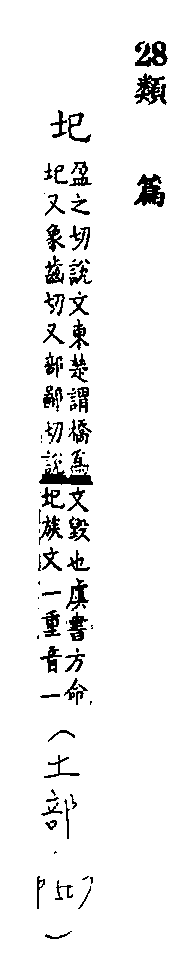 28類
篇
圯
盈之切說文東楚謂橋爲
圯又象齒切又部鄙切說
文毀也虞書方命
圯族文一重音一
(土部.